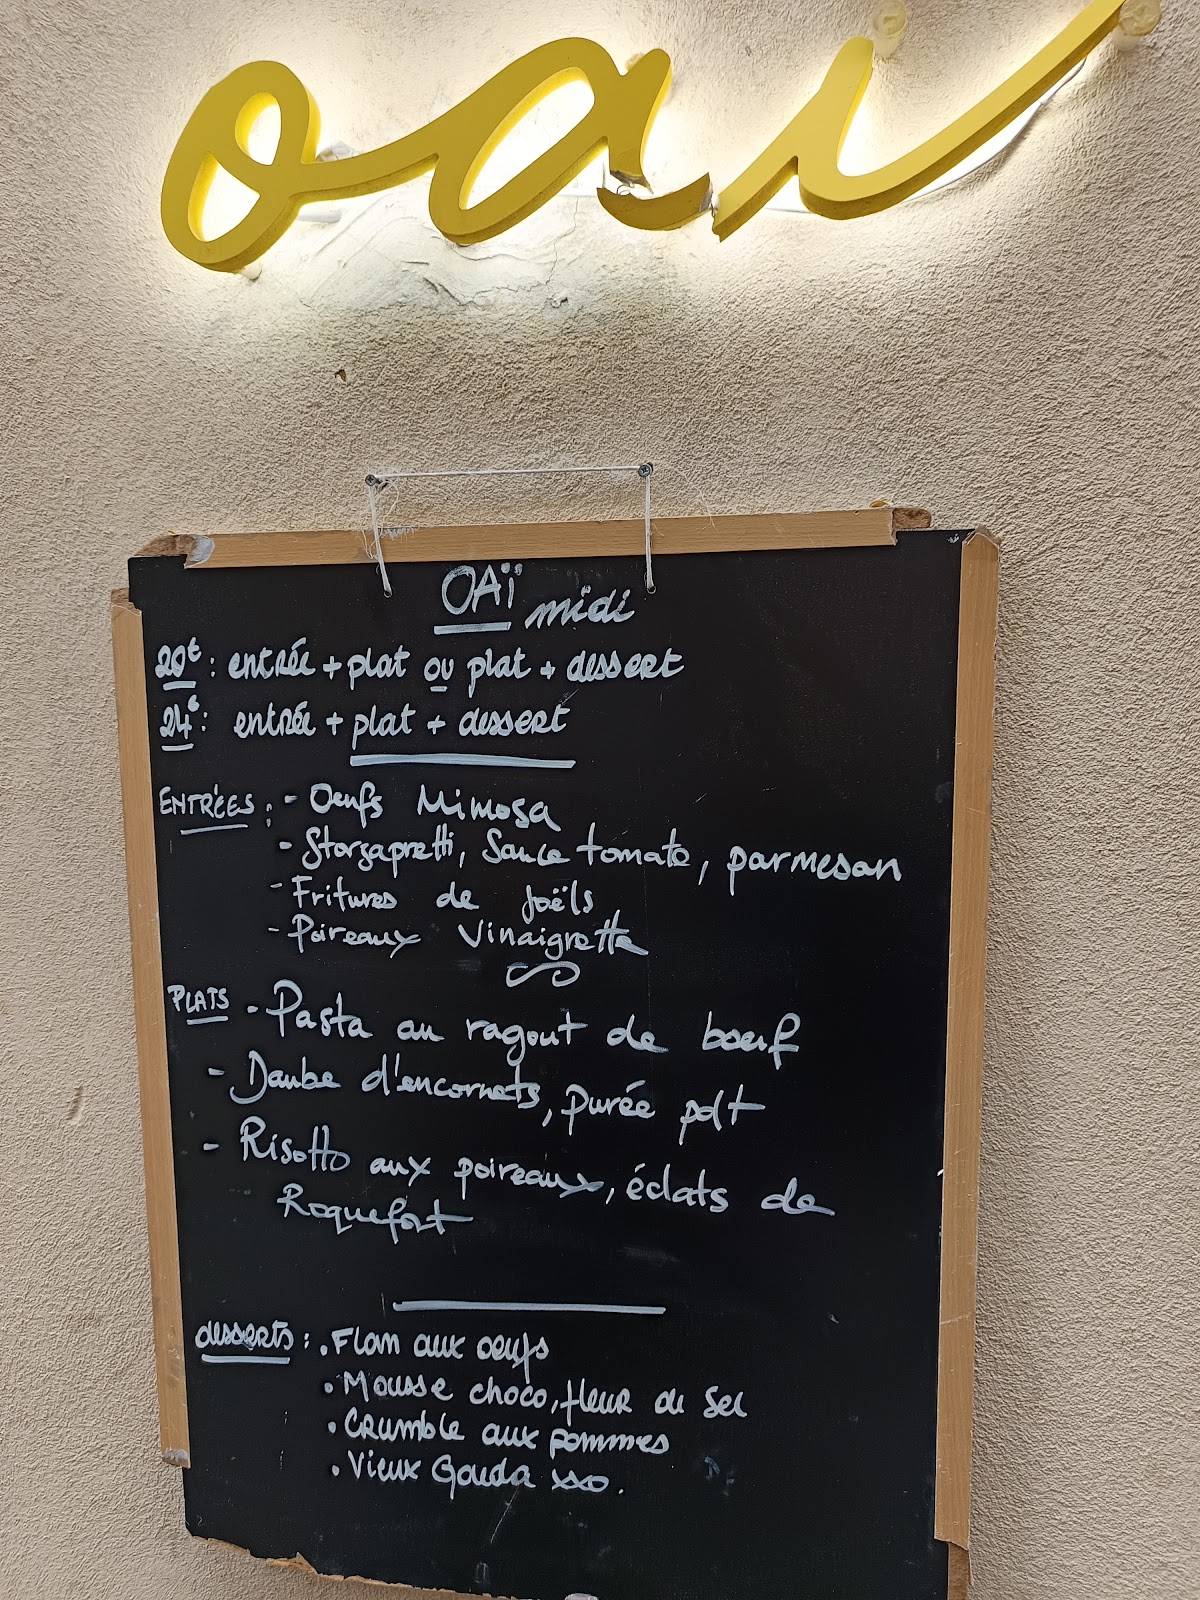 oai
OAï midi
20€ : entrée + plat ou plat + dessert
24€ : entrée + plat + dessert
ENTRÉES : - Oeufs Mimosa
- Storzapretti, Sauce tomate, parmesan
- Fritures de Joëls
- Poireaux Vinaigrette
PLATS - Pasta au ragout de boeuf
- Daube d'encornets, purée pdt
- Risotto aux poireaux, éclats de
Roquefort
desserts : . Flan aux oeufs
. Mousse choco, fleur de sel
. Crumble aux pommes
. Vieux Gouda xxo.